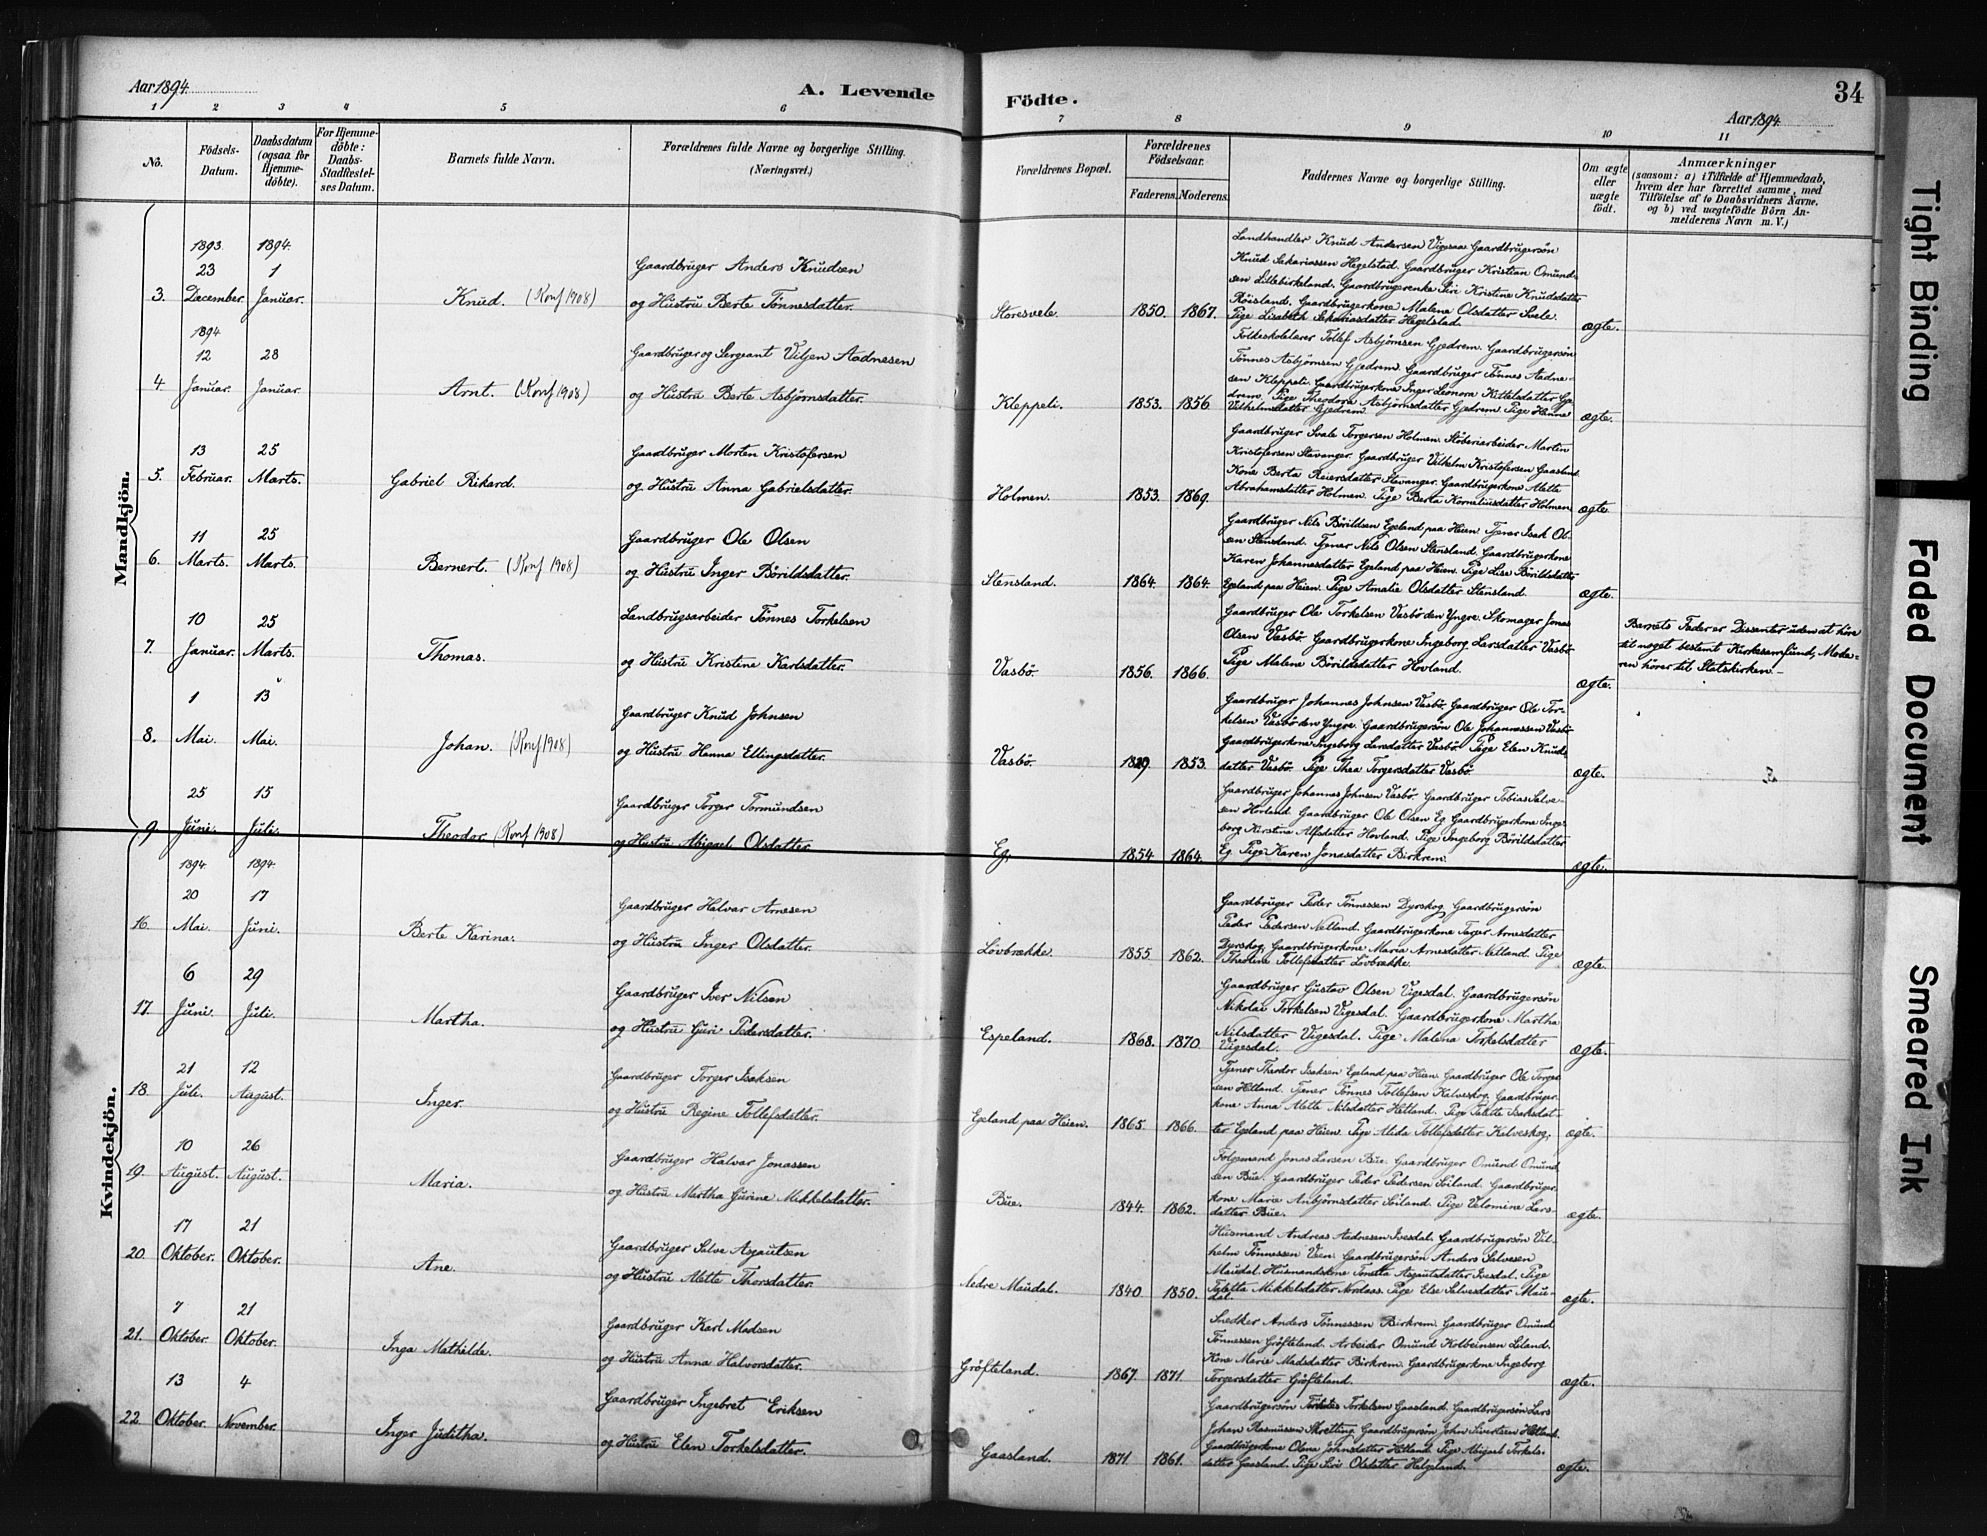 Aar 1894.
A. Levende
Födte.
34
Aar 1894
1 2 3 4 5 6 7 8 9 10 11
No.
Födsels-
Datum.
Daabsdatum
(ogsaa for
Hjemme-
döbte).
For Hjemme-
döbte:
Daabs-
Stadfæstel-
ses Datum.
Barnets fulde Navn.
Forældrenes fulde Navne og borgerlige Stilling.
(Næringsvei.)
Forældrenes Bopæl.
Forældrenes
Födselsaar.
Faderens. Moderens.
Faddernes Navne og borgerlige Stilling.
Om ægte
eller
uægte
födt.
Anmærkninger
(saasom: a) i Tilfælde af Hjemmedaab,
hvem der har forrettet samme, med
Tilföielse af to Daabsvidners Navne.
og b) ved uægtefödte Börn An-
melderens Navn m. V.)
Mandkjön.
1893. 1894.
23 1
3. December. Januar. Knud. (Konf 1908)
Gaardbruger Anders Knudsen
og Hustru Berte Tönnesdatter.
Storesvele. 1850. 1867.
Landhandler Knud Andersen Vigesaa Gaardbrugersön
Knud Sakariassen Hegelstad. Gaardbruger Kristian Omund-
sen Litlebirkeland. Gaardbrugerenke Siri Kristine Knudsdatter
Röisland. Gaardbrugerkone Malene Olsdatter Svele.
Pige Lisabeth Sakariasdatter Hegelstad.
ægte.
1894
12 28
4. Januar. Januar. Arnt. (Konf 1908)
Gaardbruger og Sergeant Viljen Aadnesen
og Hustru Berte Asbjörnsdatter.
Kleppeli. 1853. 1856
Folkeskolelærer Tollef Asbjörnsen Gjedrem. Gaardbrugersön
Tönnes Asbjörnsen Gjedrem. Gaardbruger Tönnes Aadne-
sen Kleppeli. Gaardbrugerkone Inger Leonora Kittelsdatter Gje-
drem. Pige Theodora Asbjörnsdatter Gjedrem Pige Hanne
Vilhelmsdatter Gjedrem.
ægte.
13 25
5. Februar. Marts. Gabriel Rikard.
Gaardbruger Morten Kristofersen
og Hustru Anna Gabrielsdatter.
Holmen. 1853. 1869.
Gaardbruger Svale Torgersen Holmen. Stöberiarbeider Martin
Kristofersen Stavanger. Gaardbruger Vilhelm Kristofersen Gaasland.
Kone Berta Reiersdatter Stavanger. Gaardbrugerkone Alette
Abrahamsdatter Holmen. Pige Berta Korneliusdatter Holmen
ægte.
11 25
6. Marts. Marts. Bernert. (Konf 1908)
Gaardbruger Ole Olsen
og Hustru Inger Börildsdatter.
Stensland. 1864. 1864.
Gaardbruger Nils Börildsen Egeland paa Heien. Tjener Isak Ol-
sen Stensland. Tjener Nils Olsen Stensland. Gaardbrugerkone
Karen Johannesdatter Egeland paa Heien. Pige Lise Börildsdatter
Egeland paa Heien. Pige Amalie Olsdatter Stensland.
ægte.
10 25
7. Januar. Marts. Thomas.
Landbrugsarbeider Tönnes Torkelsen
og Hustru Kristine Karlsdatter.
Vasbö. 1856. 1866.
Gaardbruger Ole Torkelsen Vasbö den Yngre. Skomager Jonas
Olsen Vasbö. Gaardbrugerkone Ingeborg Larsdatter Vasbö
Pige Malene Börildsdatter Hovland.
ægte.
Barnets Fader er Dissenter uden at höre
til noget bestemt Kirkesamfund, Mode-
ren hörer til Statskirken.
1 13
8. Mai. Mai. Johan. (Konf 1908)
Gaardbruger Knud Johnsen
og Hustru Hanna Ellingsdatter.
Vasbö. 1853.
Gaardbruger Johannes Johnsen Vasbö. Gaardbruger Ole Tor-
kelsen Vasbö den Yngre. Gaardbrugersön Ole Johannessen Vasbö
Gaardbrugerkone Ingeborg Larsdatter Vasbö. Pige Elen Knuds-
datter Vasbö. Pige Thea Torgersdatter Vasbö.
ægte.
25 15
9. Juni. Juli. Theodor. (Konf 1908)
Gaardbruger Torger Tormundsen
og Hustru Abigael Olsdatter
Eg. 1854 1864.
Gaardbruger Johannes Johnsen Vasbö. Gaardbruger Tobias Salve-
sen Hovland. Gaardbruger Ole Olsen Eg. Gaardbrugerkone Inge-
borg Kirstina Alfsdatter Hovland. Pige Ingeborg Börildsdatter
Eg. Pige Karen Jonasdatter Birkrem.
ægte.
Kvindekjön.
1894. 1894.
20 17
16. Mai. Juni. Berte Karina.
Gaardbruger Halvar Arnesen
og Hustru Inger Olsdatter.
Lövbrække. 1855 1862.
Gaardbruger Peder Tönnessen Dyrskog. Gaardbrugersön
Peder Pedersen Netland. Gaardbrugerkone Torger Arnesdatter
Dyrskog. Gaardbrugerkone Maria Arnesdatter Netland. Pige
Thaline Tollefsdatter Lövbrække.
ægte.
6 29
17. Juni. Juli. Martha.
Gaardbruger Iver Nilsen
og Hustru Guri Pedersdatter.
Espeland. 1868. 1870.
Gaardbruger Gustav Olsen Vigesdal. Gaardbrugersön
Mikolai Torkelsen Vigesdal. Gaardbrugerkone Martha
Nilsdatter Vigesdal. Pige Malena Torkelsdatter
Vigesdal.
ægte.
21 12
18. Juli. August. Inger.
Gaardbruger Torger Isaksen
og Hustru Regine Tollefsdatter.
Egeland paa Heien. 1865. 1866.
Tjener Theodor Isaksen Egeland paa Heien. Gaardbruger Ole Torger-
sen Hetland. Tjener Tönnes Tollefsen Kalveskog. Gaardbruger-
kone Anna Alette Nilsdatter Hetland. Pige Isaksdat-
ter Egeland paa Heien. Pige Alida Tollefsdatter Kalveskog.
ægte.
10 26
19. August. August. Maria.
Gaardbruger Halvar Jonassen
og Hustru Martha Gurine Mikkelsdatter.
Bue. 1844. 1862.
Fölgemand Jonas Larsen Bue. Gaardbruger Omund Omund-
sen Bue. Gaardbruger Peder Pedersen Söiland. Gaardbruger-
kone Marie Anbjörnsdatter Söiland. Pige Velomine Lars-
datter Bue.
ægte.
17 21
20. Oktober. Oktober. Ane.
Gaardbruger Salve Asgautsen
og Hustru Alette Thorsdatter.
Nedre Maudal. 1840 1850.
Husmand Andreas Aadnesen Ivesdal. Gaardbrugersön Vil-
helm Tönnessen Veen. Gaardbrugersön Anders Salvesen
Maudal. Husmandskone Tonette Asgautsdatter Ivesdal. Pige
Mikkelsdatter Nordaas. Pige Else Salvesdatter Mau-
dal.
ægte.
7 21
21. Oktober. Oktober. Inga Mathilde.
Gaardbruger Karl Madsen
og Hustru Anna Halvorsdatter.
Gröfteland. 1867. 1871.
Snedker Anders Tönnessen Birkrem. Gaardbruger Omund
Tönnessen Gröfteland. Arbeider Omund Kolbeinsen Liland.
Kone Marie Madsdatter Birkrem. Gaardbrugerkone Ingeborg
Torgersdatter Gröfteland.
ægte.
13 4
22. Oktober. November. Inger Juditha.
Gaardbruger Ingebret Eriksen
og Hustru Elen Torkelsdatter.
Gaasland. 1871. 1861.
Gaardbrugersön Torkelsen Gaasland. Gaardbrugersön Lars
Johan Rasmussen Skretting Gaardbrugersön John Sivertsen Hetland.
Gaardbrugerkone Olena Johnsdatter Hetland. Pige Abigael Torkels-
datter Gaasland. Pige Siri Olsdatter Helgeland.
ægte.
Tight Binding
Faded Document
Smeared Ink